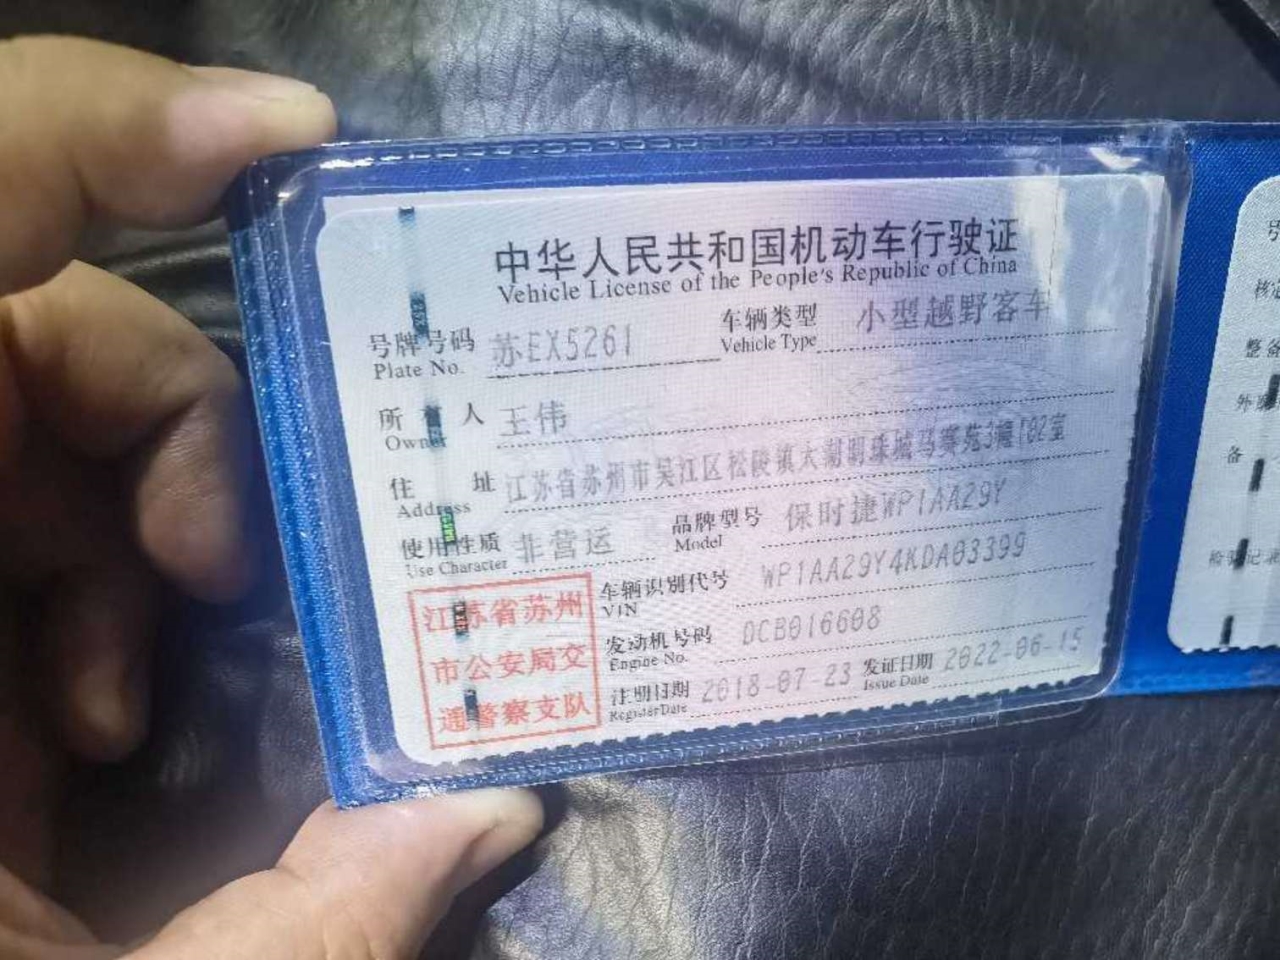 中华人民共和国机动车行驶证
Vehicle License of the People's Republic of China
号牌号码 苏EX5261 车辆类型 小型越野客车
Plate No. Vehicle Type
所有人 王伟
Owner
住址 江苏省苏州市吴江区松陵镇太湖明珠城马赛苑3幢102室
Address
使用性质 非营运 品牌型号 保时捷WP1AA29Y
Use Character Model
江苏省苏州
市公安局交
通警察支队
车辆识别代号 WP1AA29Y4KDA03399
VIN
发动机号码 DCB016608
Engine No.
注册日期 2018-07-23 发证日期 2022-06-15
Register Date Issue Date
号
核定
整备
外廓
备
检验记录